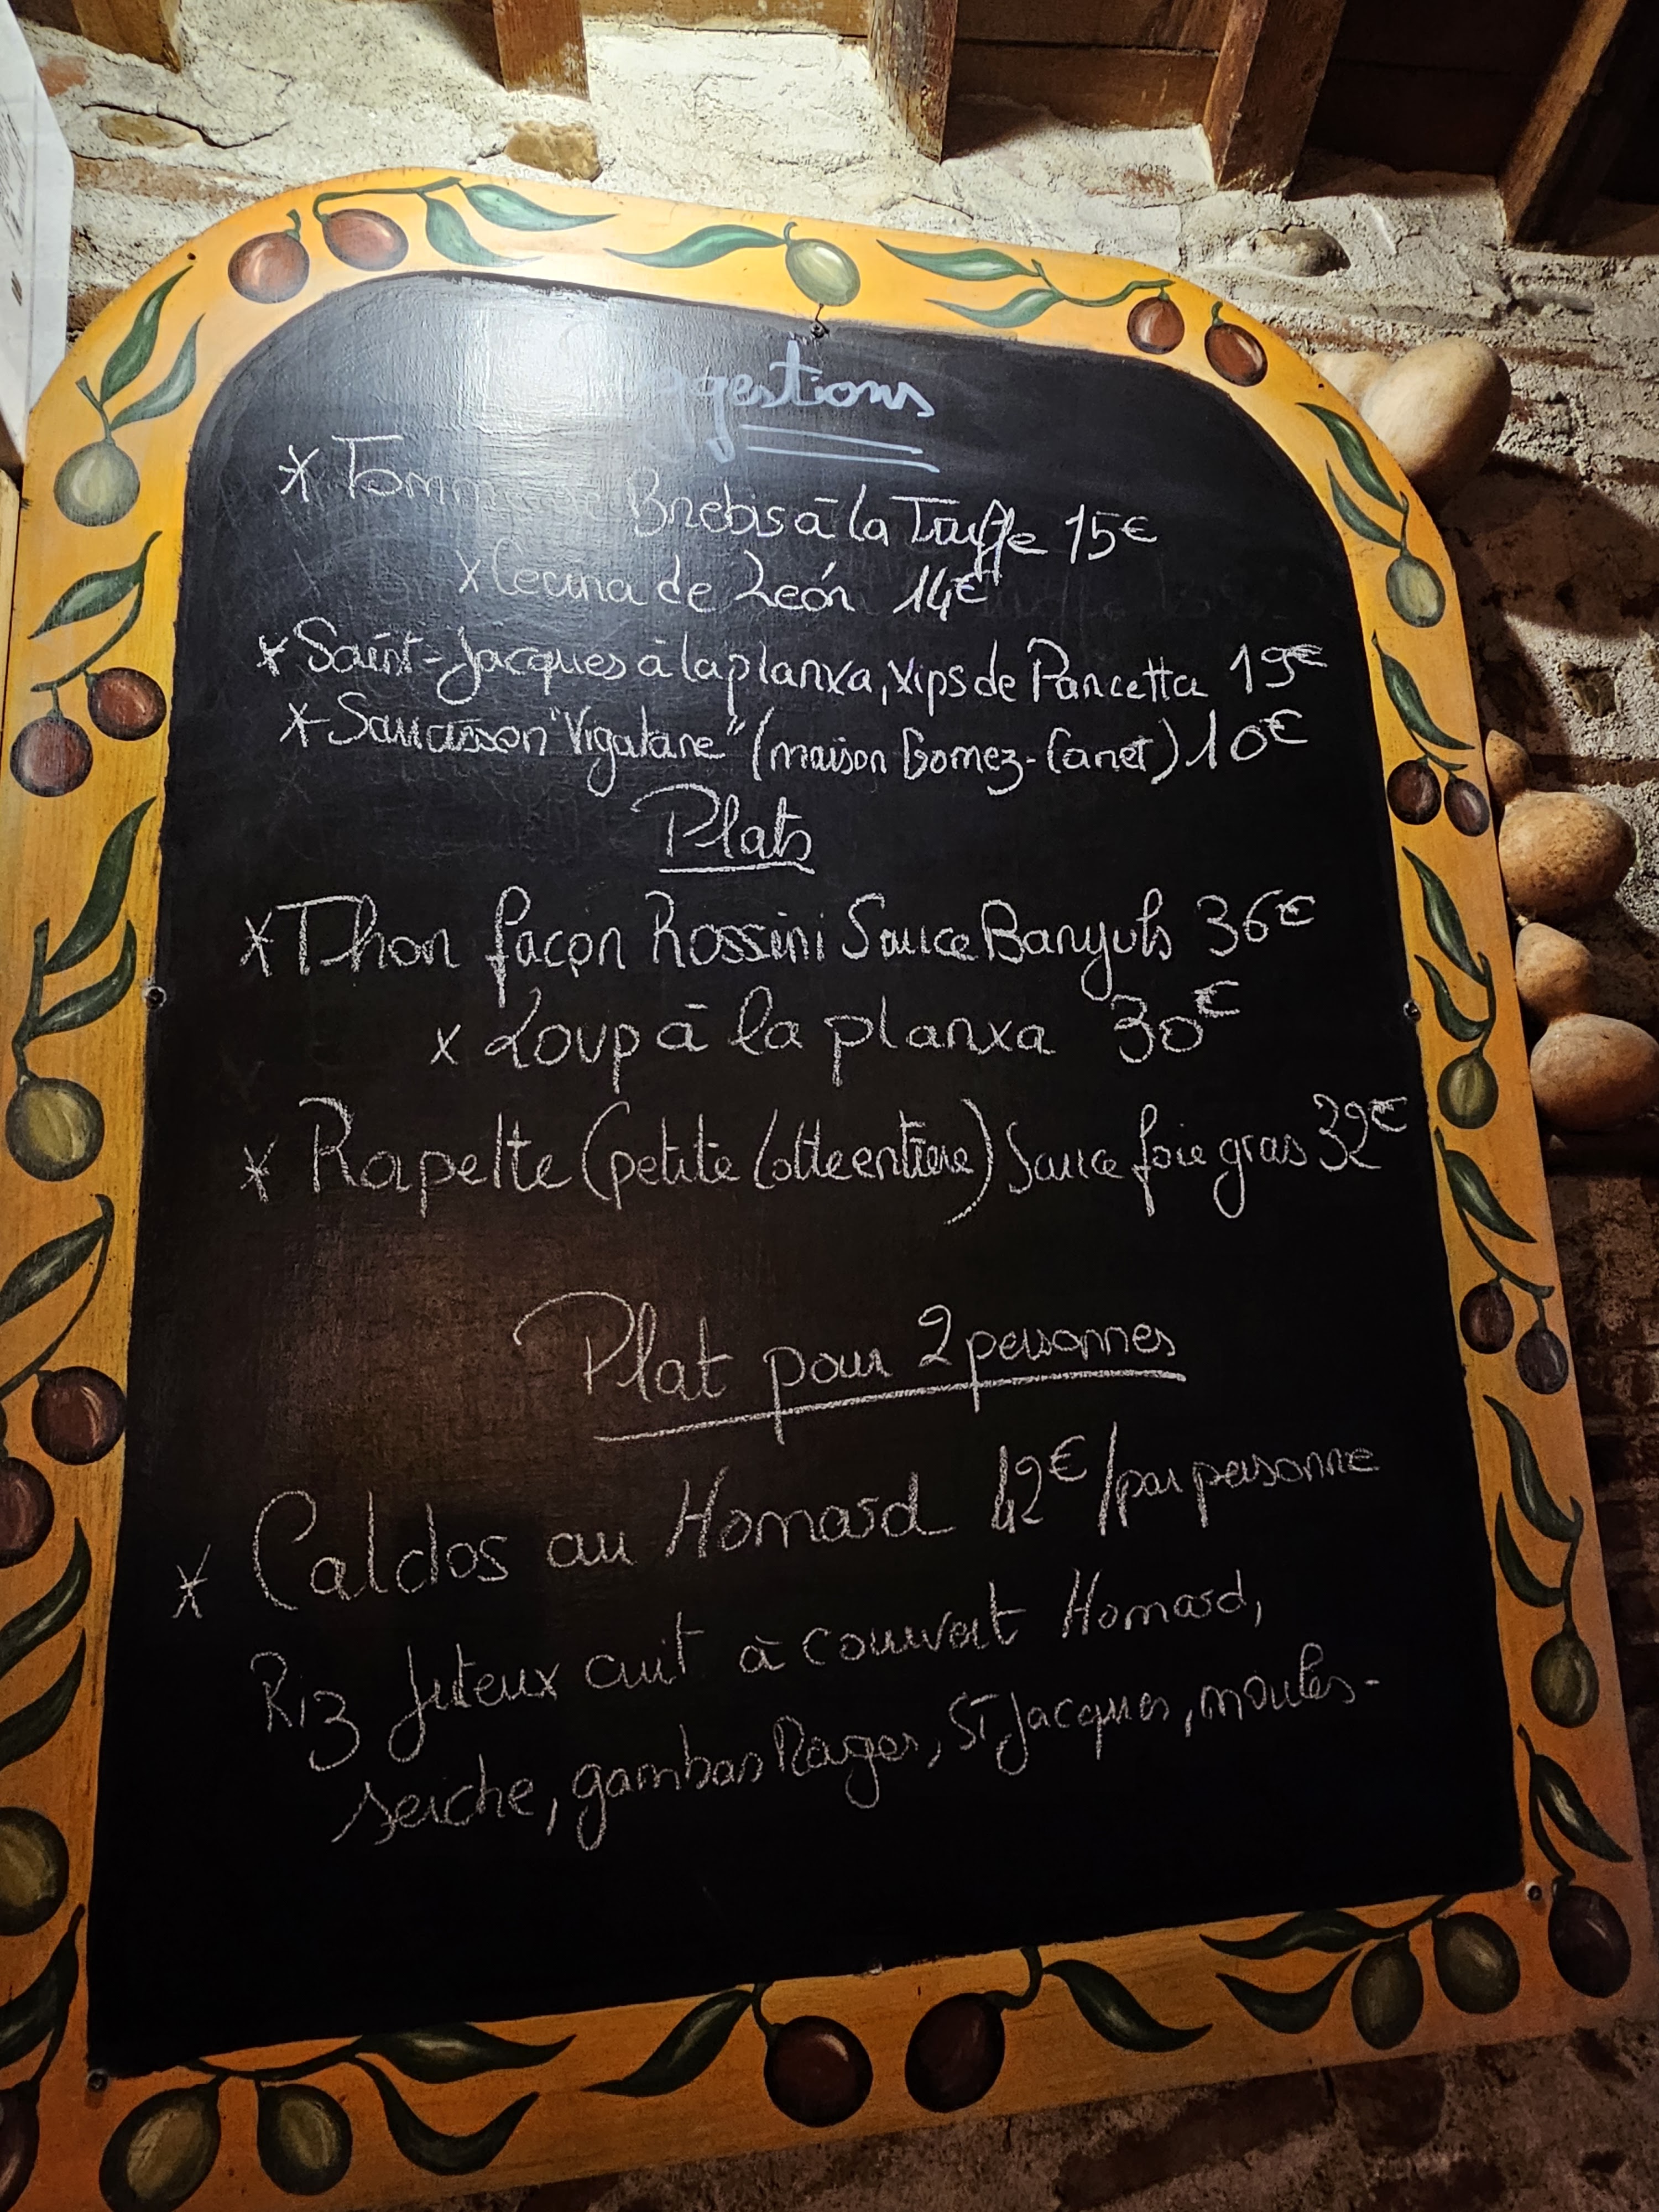 Suggestions
* Tomme de Brebis à la Truffe 15€
x Cecina de León 14€
* Saint-Jacques à la planxa, xips de Pancetta 19€
* Saucisson "Vigatane" (maison Gomez-Canet) 10€
Plats
* Thon façon Rossini Sauce Banyuls 36€
x Loup à la planxa 30€
* Rapette (petite lotte entière) Sauce foie gras 32€
Plat pour 2 personnes
* Caldos au Homard 42€/par personne
Riz Juteux cuit à couvert Homard,
seiche, gambas Rouges, St Jacques, moules-